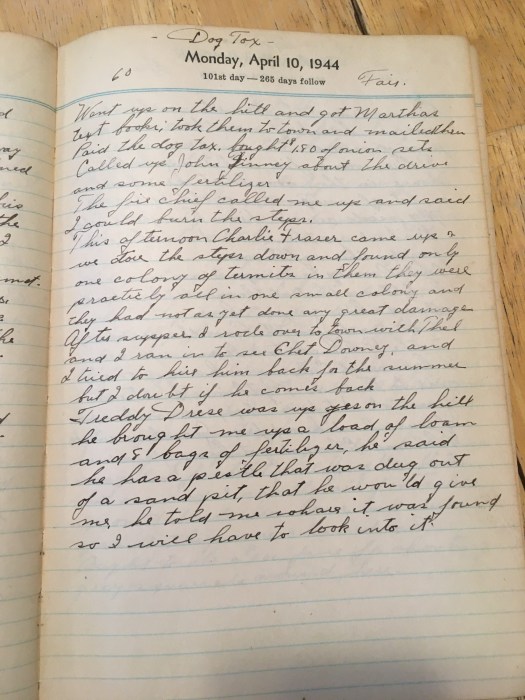 - Dog Tax -
Monday, April 10, 1944
101st day — 265 days follow
60 Fair.
Went up on the hill and got Marthas
text books, took them to town and mailed them
Paid the dog tax. bought $1.80 of onion sets
Called up John Finney about the drive
and some fertilizer
The fire chief called me up and said
I could burn the steps.
This afternoon Charlie Fraser came up &
we tore the steps down and found only
one colony of termites in them they were
practicly all in one small colony and
they had not as yet done any great damage
After supper I rode over to town with Phil
and I ran in to see Chet Downey, and
I tried to hire him back for the summer
but I doubt if he comes back
Freddy Drese was up on the hill
he brought me up a load of loam
and 8 bags of fertilizer, he said
he has a pestle that was dug out
of a sand pit, that he would give
me, he told me where it was found
so I will have to look into it.